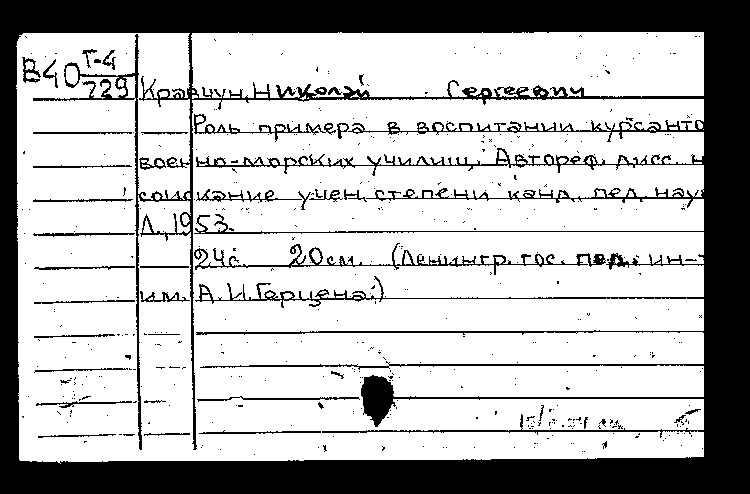 В40 Г-4
729
Кравчун, Николай Сергеевич
Роль примера в воспитании курсанто
военно-морских училищ. Автореф. дисс. н
соискание учен. степени канд. пед. наук
Л., 1953.
24с. 20см. (Ленингр. гос. пед. ин-т
им. А.И.Герцена.)